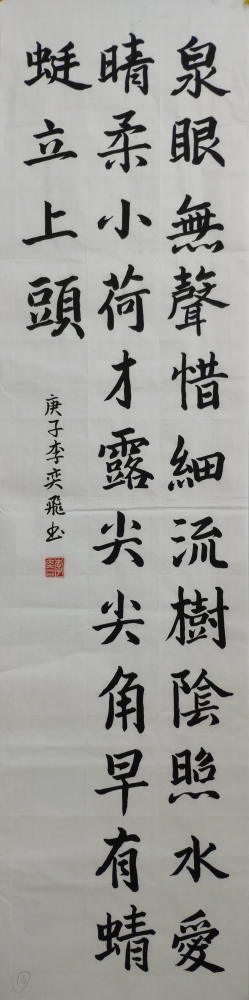 泉眼無聲惜細流樹陰照水愛
晴柔小荷才露尖尖角早有蜻
蜓立上頭
庚子李奕飛书